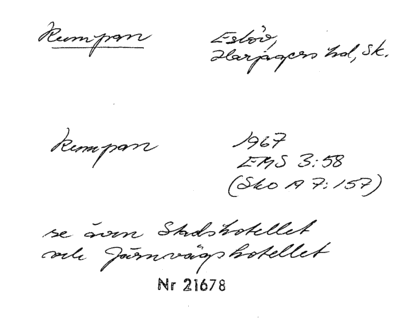 Rumpan Eslöv,
Harjagers hd, Sk.
Rumpan 1967
EMS 3:58
(Sko A 7:157)
se även Stadshotellet
och Järnvägshotellet
Nr 21678